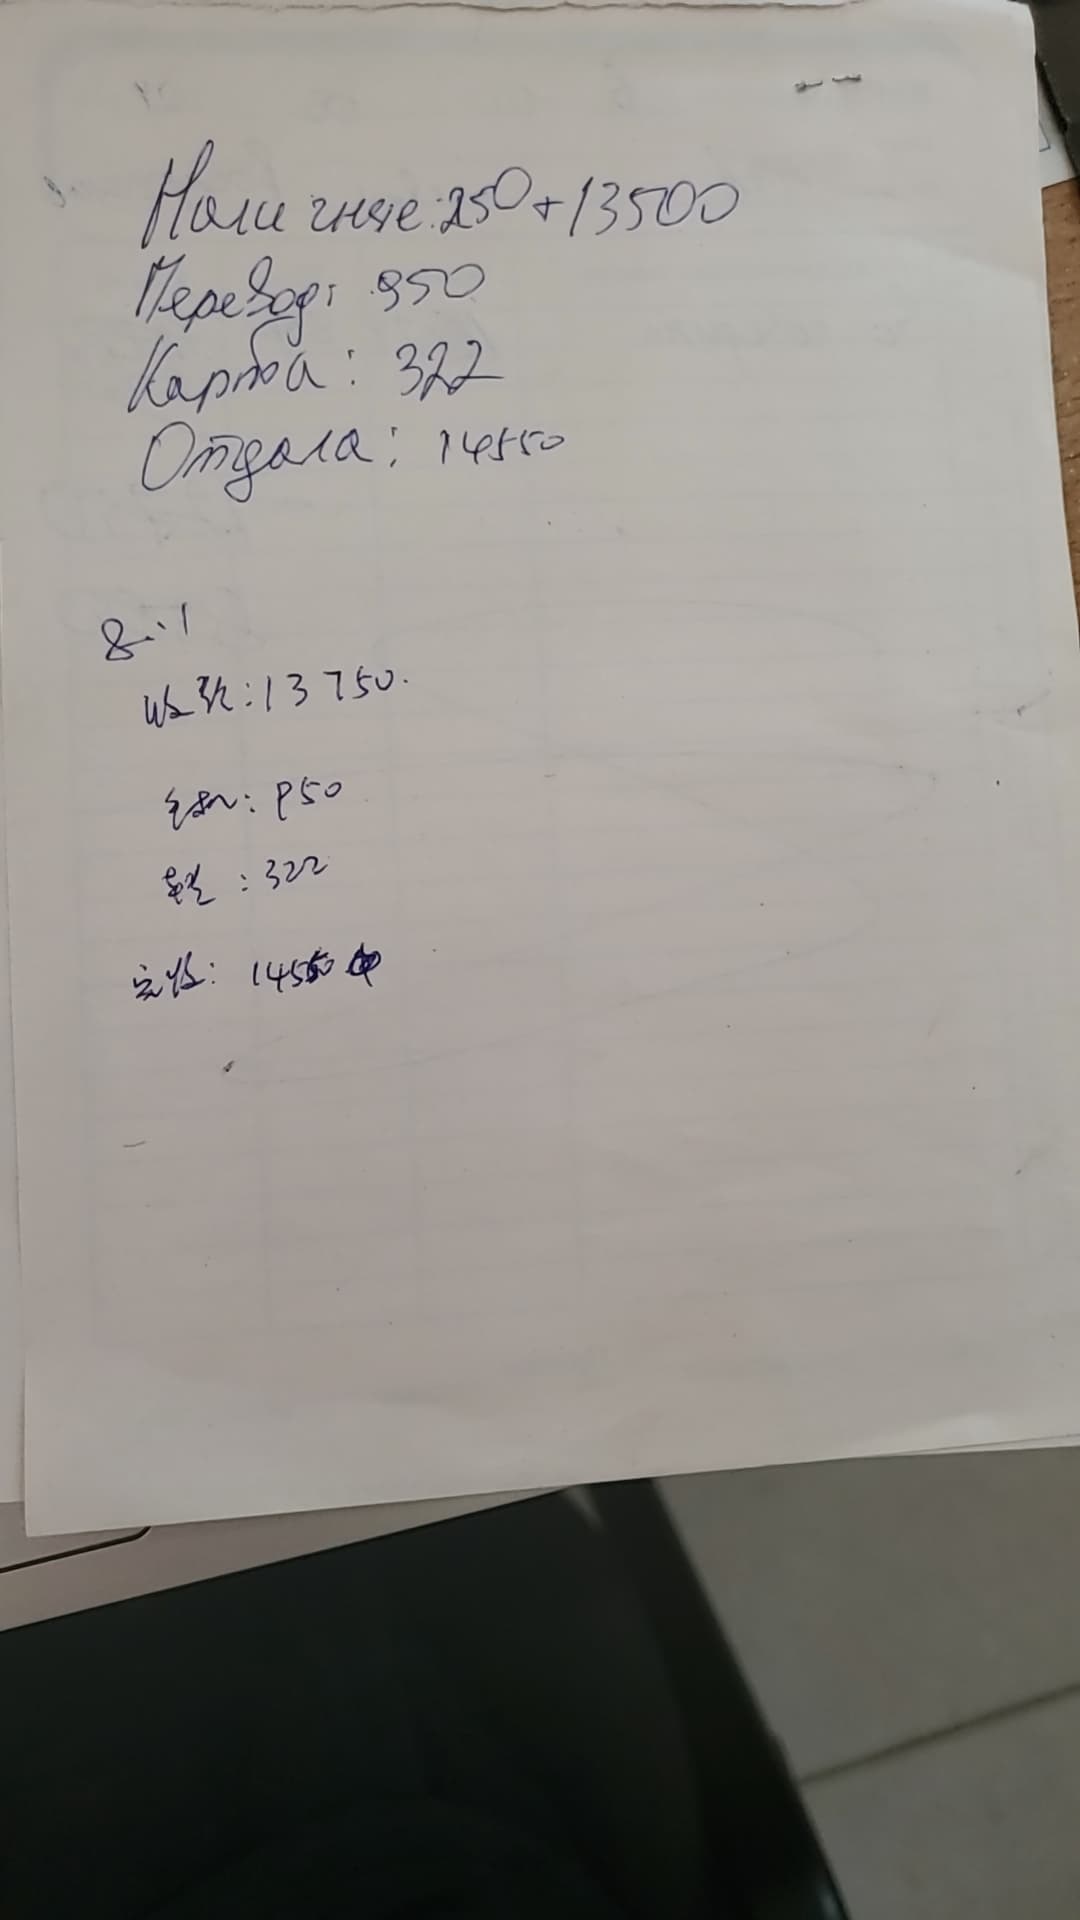 Наличные: 250 + 13500
Перевод: 950
Карта: 322
Отдала: 14550
8.1
收款: 13750.
: 950
: 322
实收: 14550